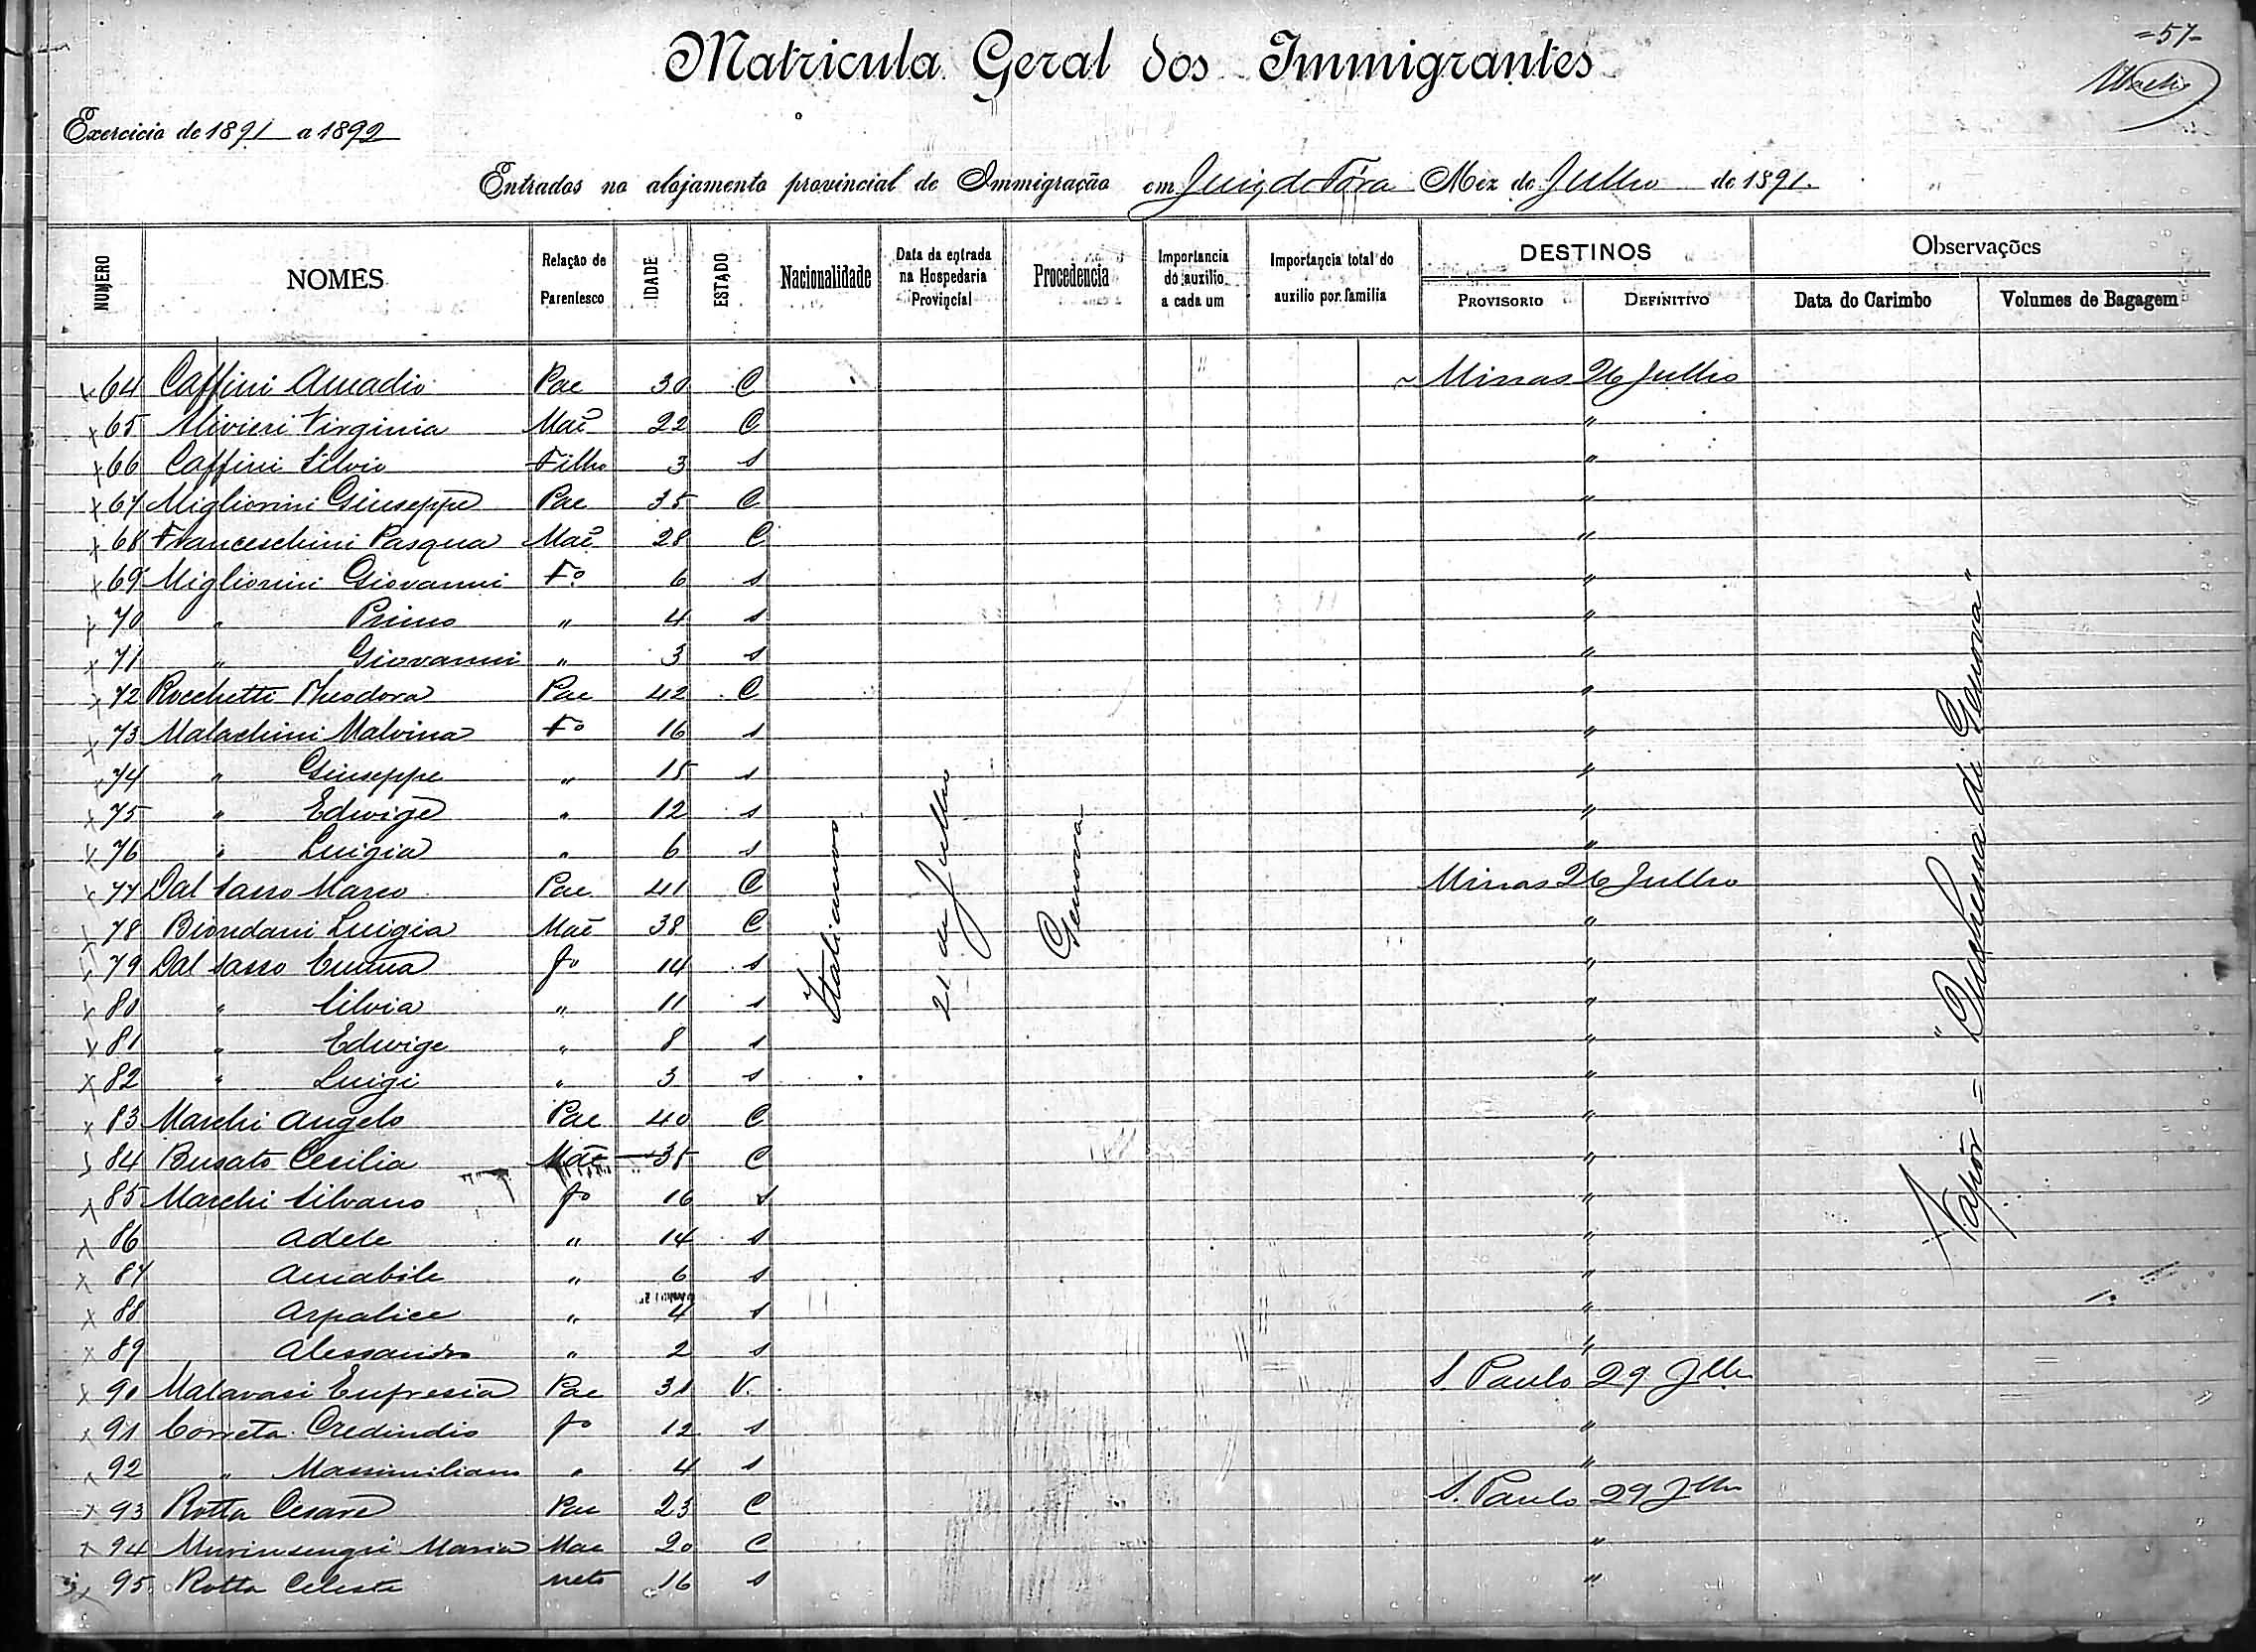 =57=
Matricula Geral dos Immigrantes
Exercicio de 1891 a 1892
Entrados no alojamento provincial de Immigração em Juiz de Fóra Mez de Julho de 1891.
NUMERO NOMES Relação de Parentesco IDADE ESTADO Nacionalidade Data da entrada na Hospedaria Provincial Procedencia Importancia do auxilio a cada um Importancia total do auxilio por familia DESTINOS PROVISORIO DEFINITIVO Observações Data do Carimbo Volumes de Bagagem
64 Caffini Amadio Pae 30 C Minas 26 Julho
65 Alivieri Virginia Mãe 22 C "
66 Caffini Silvio Filho 3 s "
67 Migliorini Giuseppe Pae 35 C "
68 Franceschini Pasqua Mãe 28 C "
69 Migliorini Giovanni Fo 6 s "
70 " Primo " 4 s "
71 " Giovanni " 3 s "
72 Rocchetti Theodora Pae 42 C "
73 Malachini Malvina Fo 16 s "
74 " Giuseppe " 15 s "
75 " Edwige " 12 s "
76 " Luigia " 6 s "
77 Dal Sasso Marco Pae 41 C Minas 26 Julho
78 Biondani Luigia Mãe 38 C "
79 Dal Sasso Emma fo 14 s "
80 " Silvia " 11 s "
81 " Edwige " 8 s "
82 " Luigi " 3 s "
83 Marchi Angelo Pae 40 C "
84 Busato Cecilia Mãe 35 C "
85 Marchi Silvano fo 16 s "
86 Adele " 14 s "
87 Amabile " 6 s "
88 Arpalice " 4 s "
89 Alessandro " 2 s "
90 Malavasi Eufresia Pae 31 V. S. Paulo 29 Jlho
91 Correta Credindio fo 12 s "
92 " Massimiliano " 4 s "
93 Rotta Cesare Pae 23 C S. Paulo 29 Jlho
94 Maria Mae 20 C "
95 Rotta Celeste neto 16 s "
Italianno
21 de Julho
Genova
Vapôr = "Duchessa di Genova"